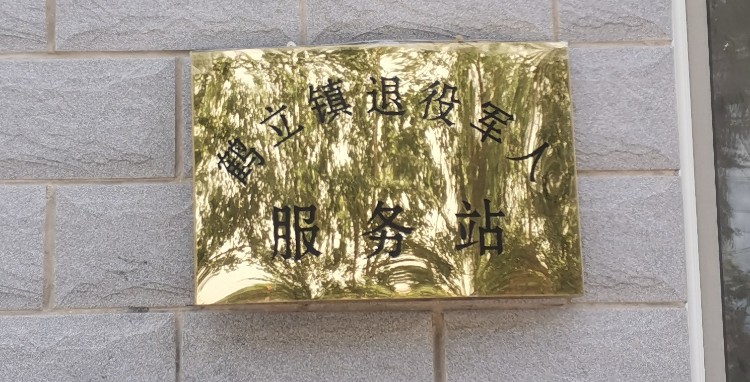 鹤立镇退役军人
服务站